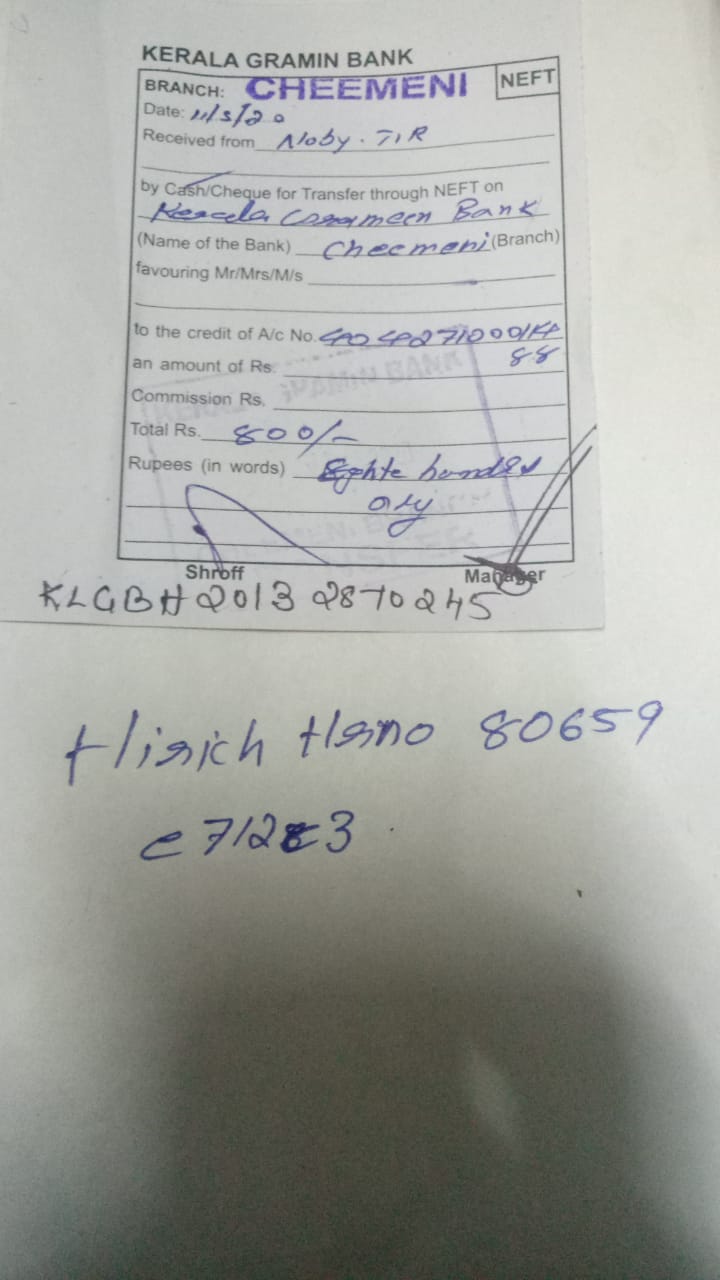 KERALA GRAMIN BANK
BRANCH: CHEEMENI NEFT
Date: 11/3/20
Received from Noby. T.R
by Cash/Cheque for Transfer through NEFT on
Kerala Bank
(Name of the Bank) Cheemeni (Branch)
favouring Mr/Mrs/M/s
to the credit of A/c No.
88
an amount of Rs.
Commission Rs.
Total Rs. 800/-
Rupees (in words)
Shroff Manager
KLGBH2013 2870245
80659